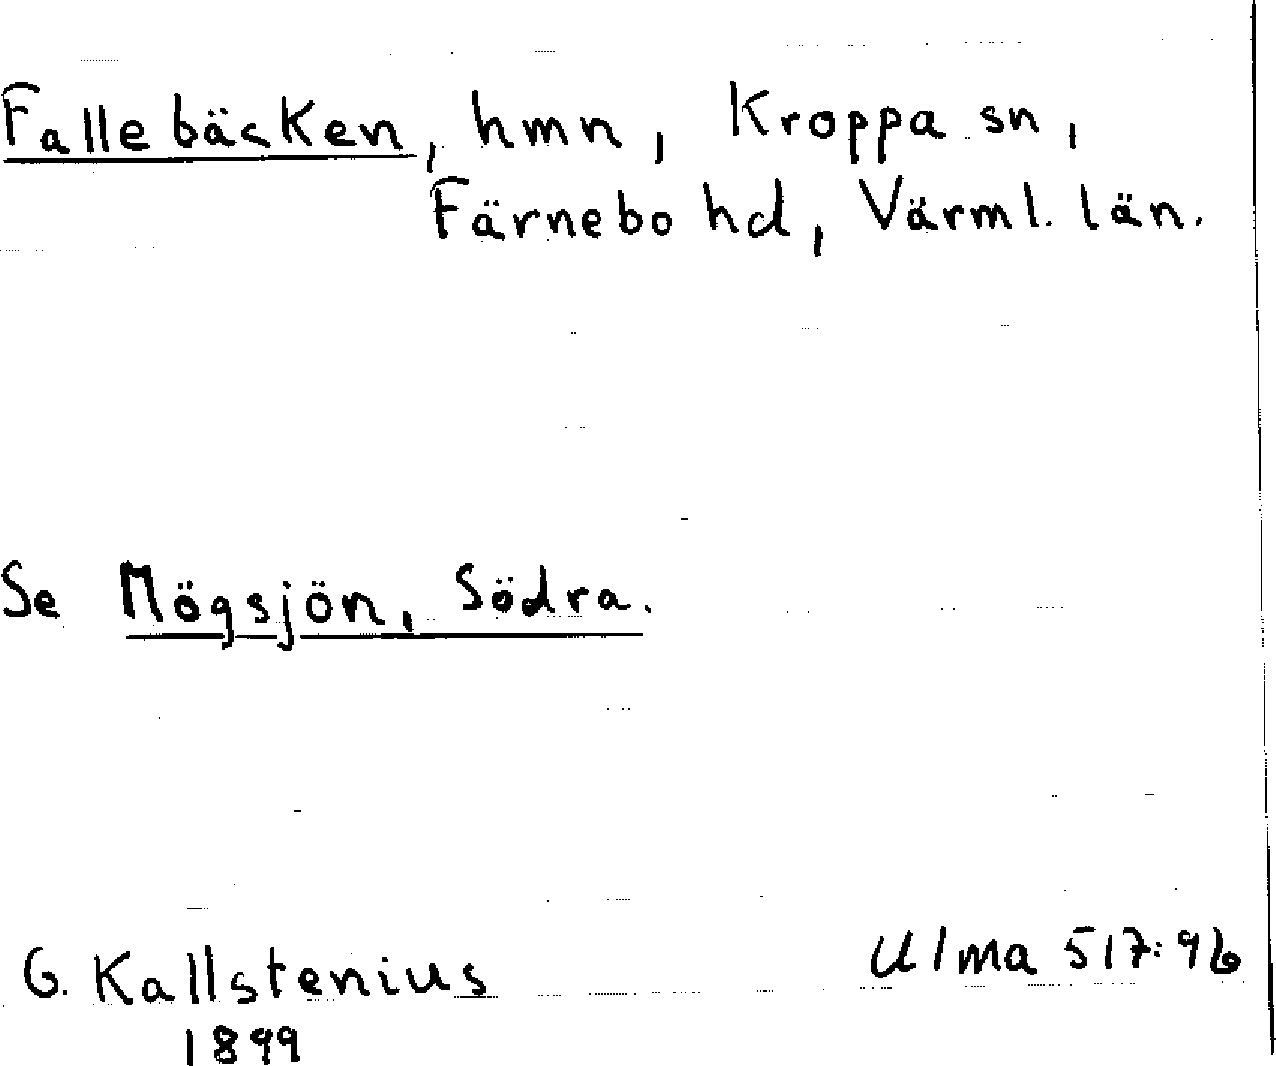 Fallebäcken, hmn, Kroppa sn,
Färnebo hd, Värml. län.
Se Mögsjön, Södra.
G. Kallstenius
1899
Ulma 517:9b